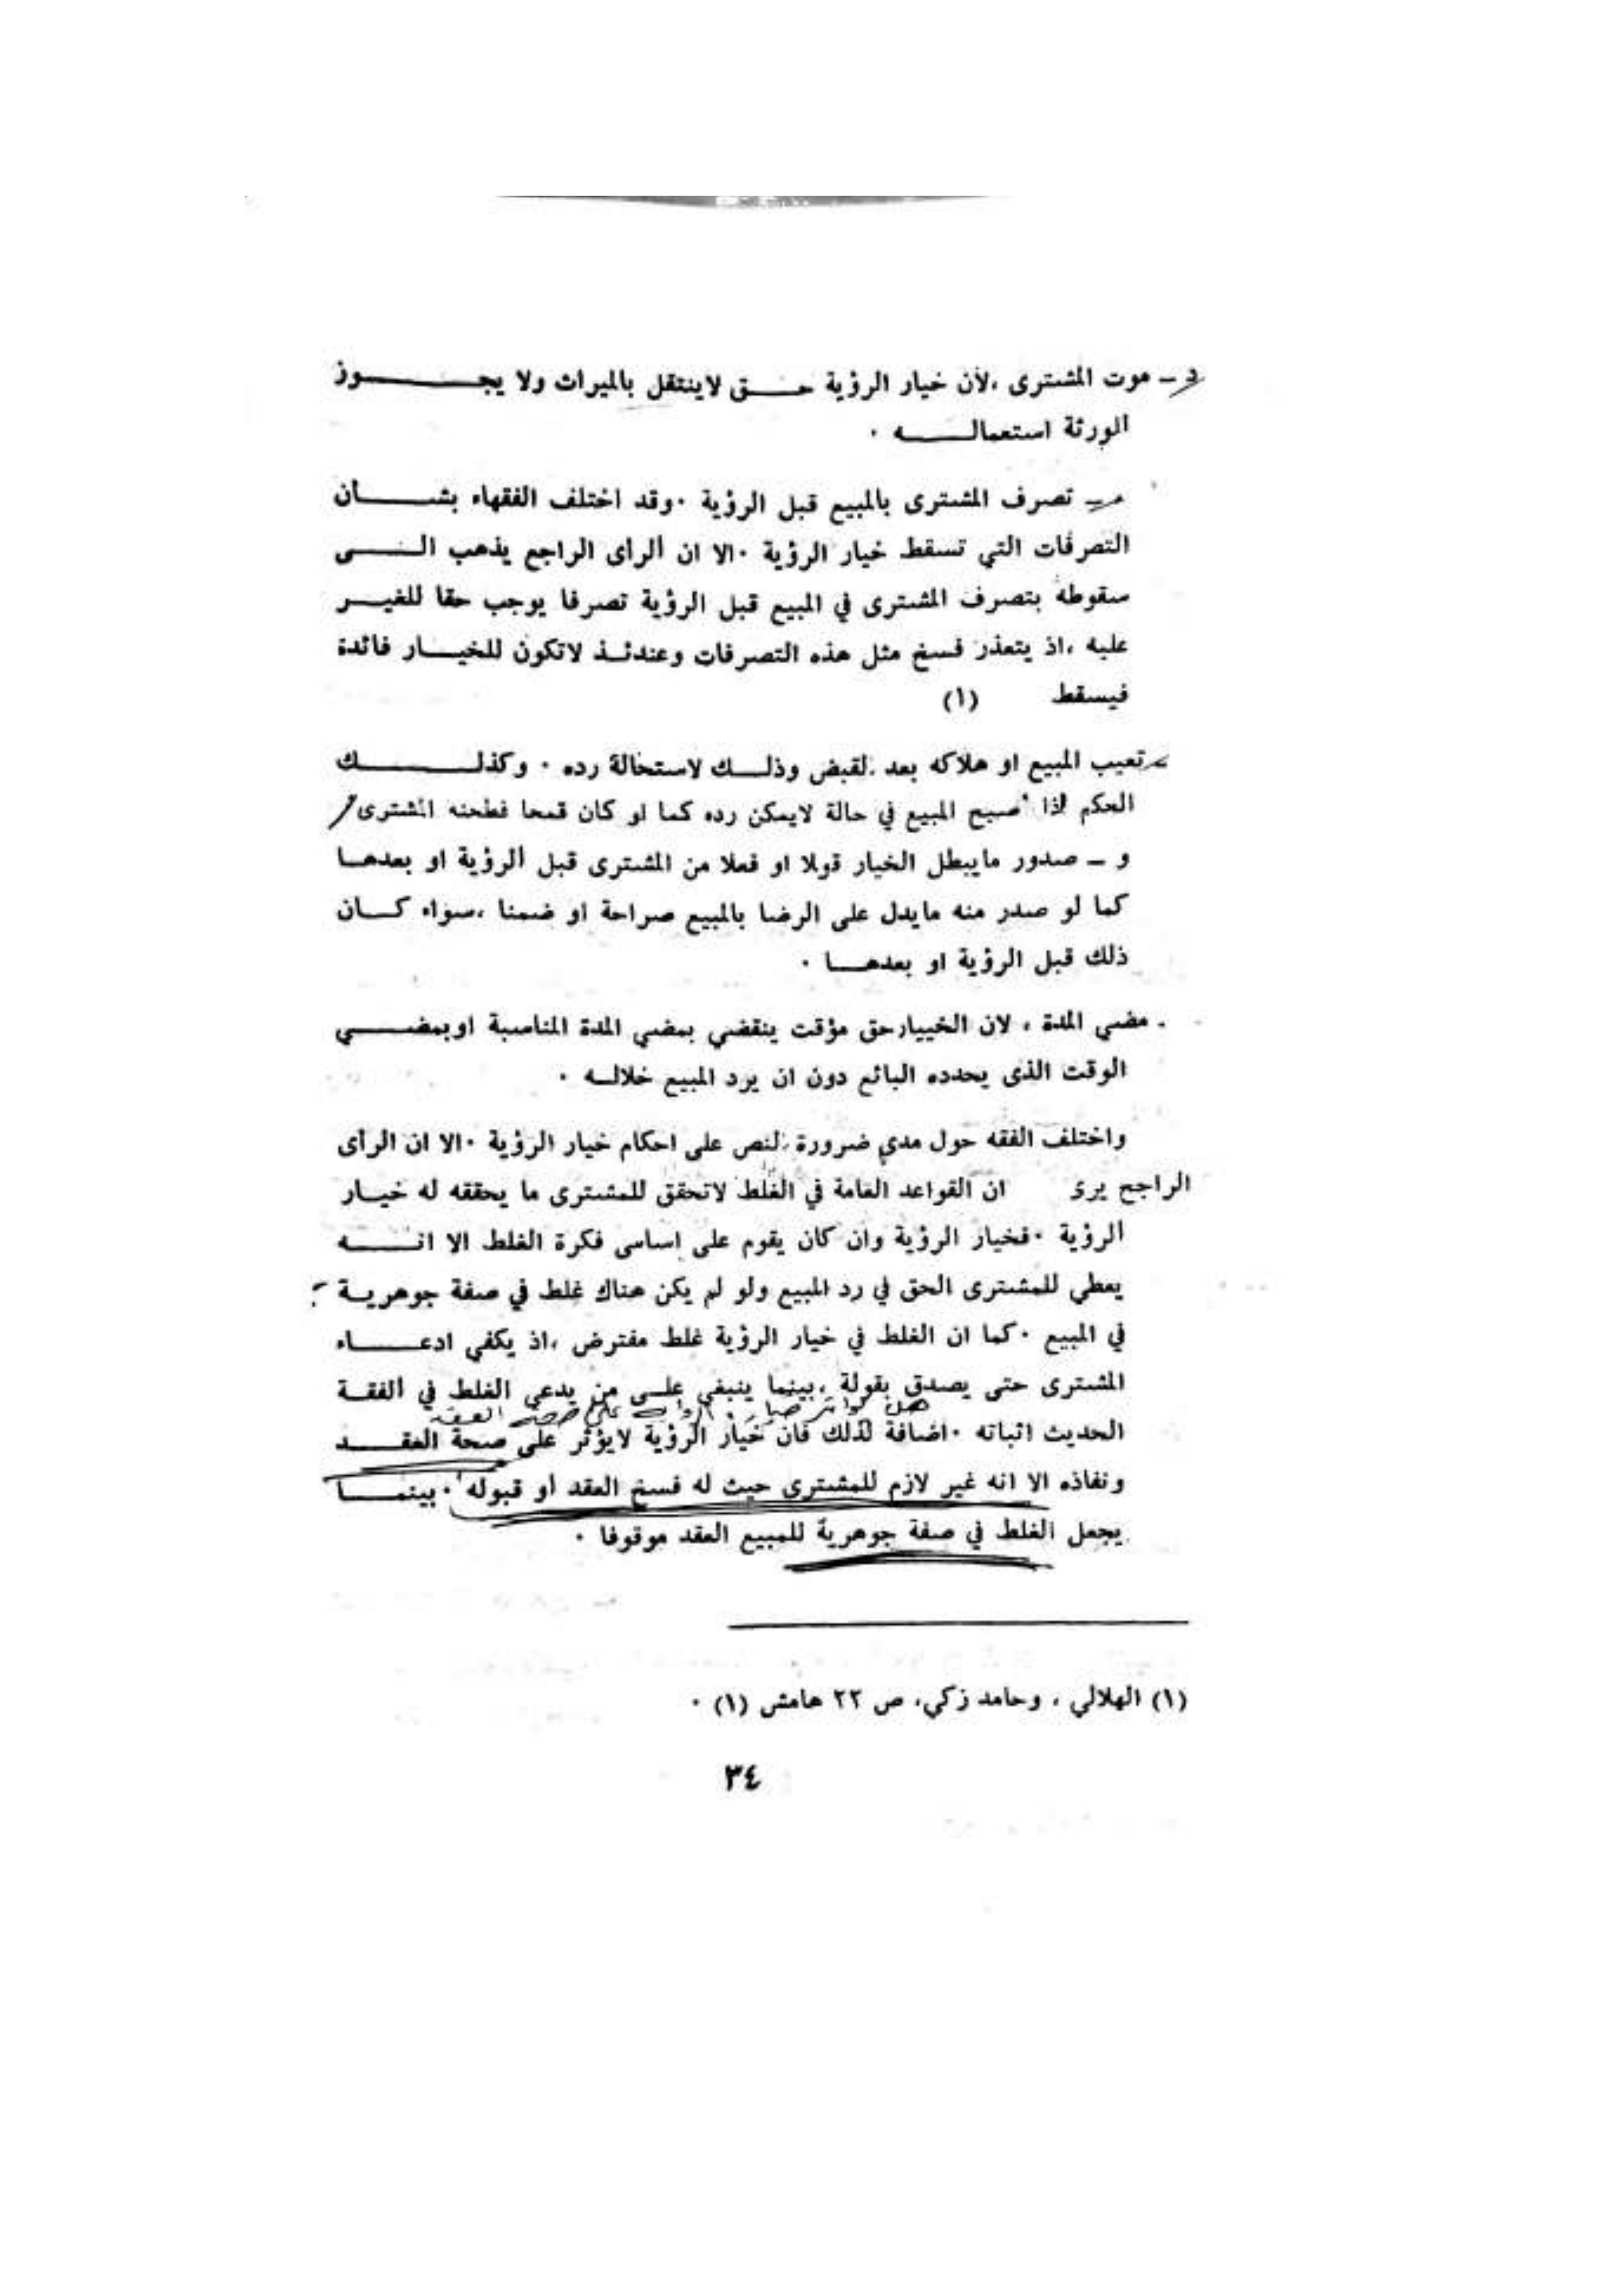 د ـ موت المشترى ،لأن خيار الرؤية حـــق لاينتقل بالميراث ولا يجـــــوز
الورثة استعمالـــــه ٠
تصرف المشترى بالمبيع قبل الرؤية ٠وقد اختلف الفقهاء بشـــــأن
التصرفات التي تسقط خيار الرؤية ٠الا ان الرأى الراجع يذهب الـــى
سقوطه بتصرف المشترى في المبيع قبل الرؤية تصرفا يوجب حقا للغيـــر
عليه ،اذ يتعذر فسخ مثل هذه التصرفات وعندئـذ لاتكون للخيـــار فائدة
فيسقط (١)
تعيب المبيع او هلاكه بعد لقبض وذلــك لاستحالة رده ٠ وكذلـــــك
الحكم اذا صبح المبيع في حالة لايمكن رده كما لو كان قمحا فطحنه المشترى
و ـ صدور مايبطل الخيار قولا او فعلا من المشترى قبل الرؤية او بعدهـا
كما لو صدر منه مايدل على الرضا بالمبيع صراحة او ضمنا ،سواء كـــان
ذلك قبل الرؤية او بعدهـــا ٠
مضي المدة ، لان الخييارحق مؤقت ينقضي بمضي المدة المناسبة اوبمضـــي
الوقت الذى يحدده البائع دون ان يرد المبيع خلالـه ٠
واختلف الفقه حول مدى ضرورة لنص على احكام خيار الرؤية ٠الا ان الرأى
الراجح يرى ان القواعد العامة في الغلط لاتحقق للمشترى ما يحققه له خيـار
الرؤية ٠فخيار الرؤية وان كان يقوم على اساس فكرة الغلط الا انـــــه
يعطي للمشترى الحق في رد المبيع ولو لم يكن هناك غلط في صفة جوهريـة
في المبيع ٠كما ان الغلط في خيار الرؤية غلط مفترض ،اذ يكفي ادعـــاء
المشترى حتى يصدق بقولة ،بينما ينبغي علــى من يدعي الغلط في الفقـة
الحديث اثباته ٠اضافة لذلك فان خيار الرؤية لايؤثر على صحة العقـــد
ونفاذه الا انه غير لازم للمشترى حيث له فسخ العقد أو قبوله ٠بينمـــا
يجعل الغلط في صفة جوهرية للمبيع العقد موقوفا ٠
(١) الهلالي ، وحامد زكي، ص ٢٢ هامش (١) ٠
٣٤